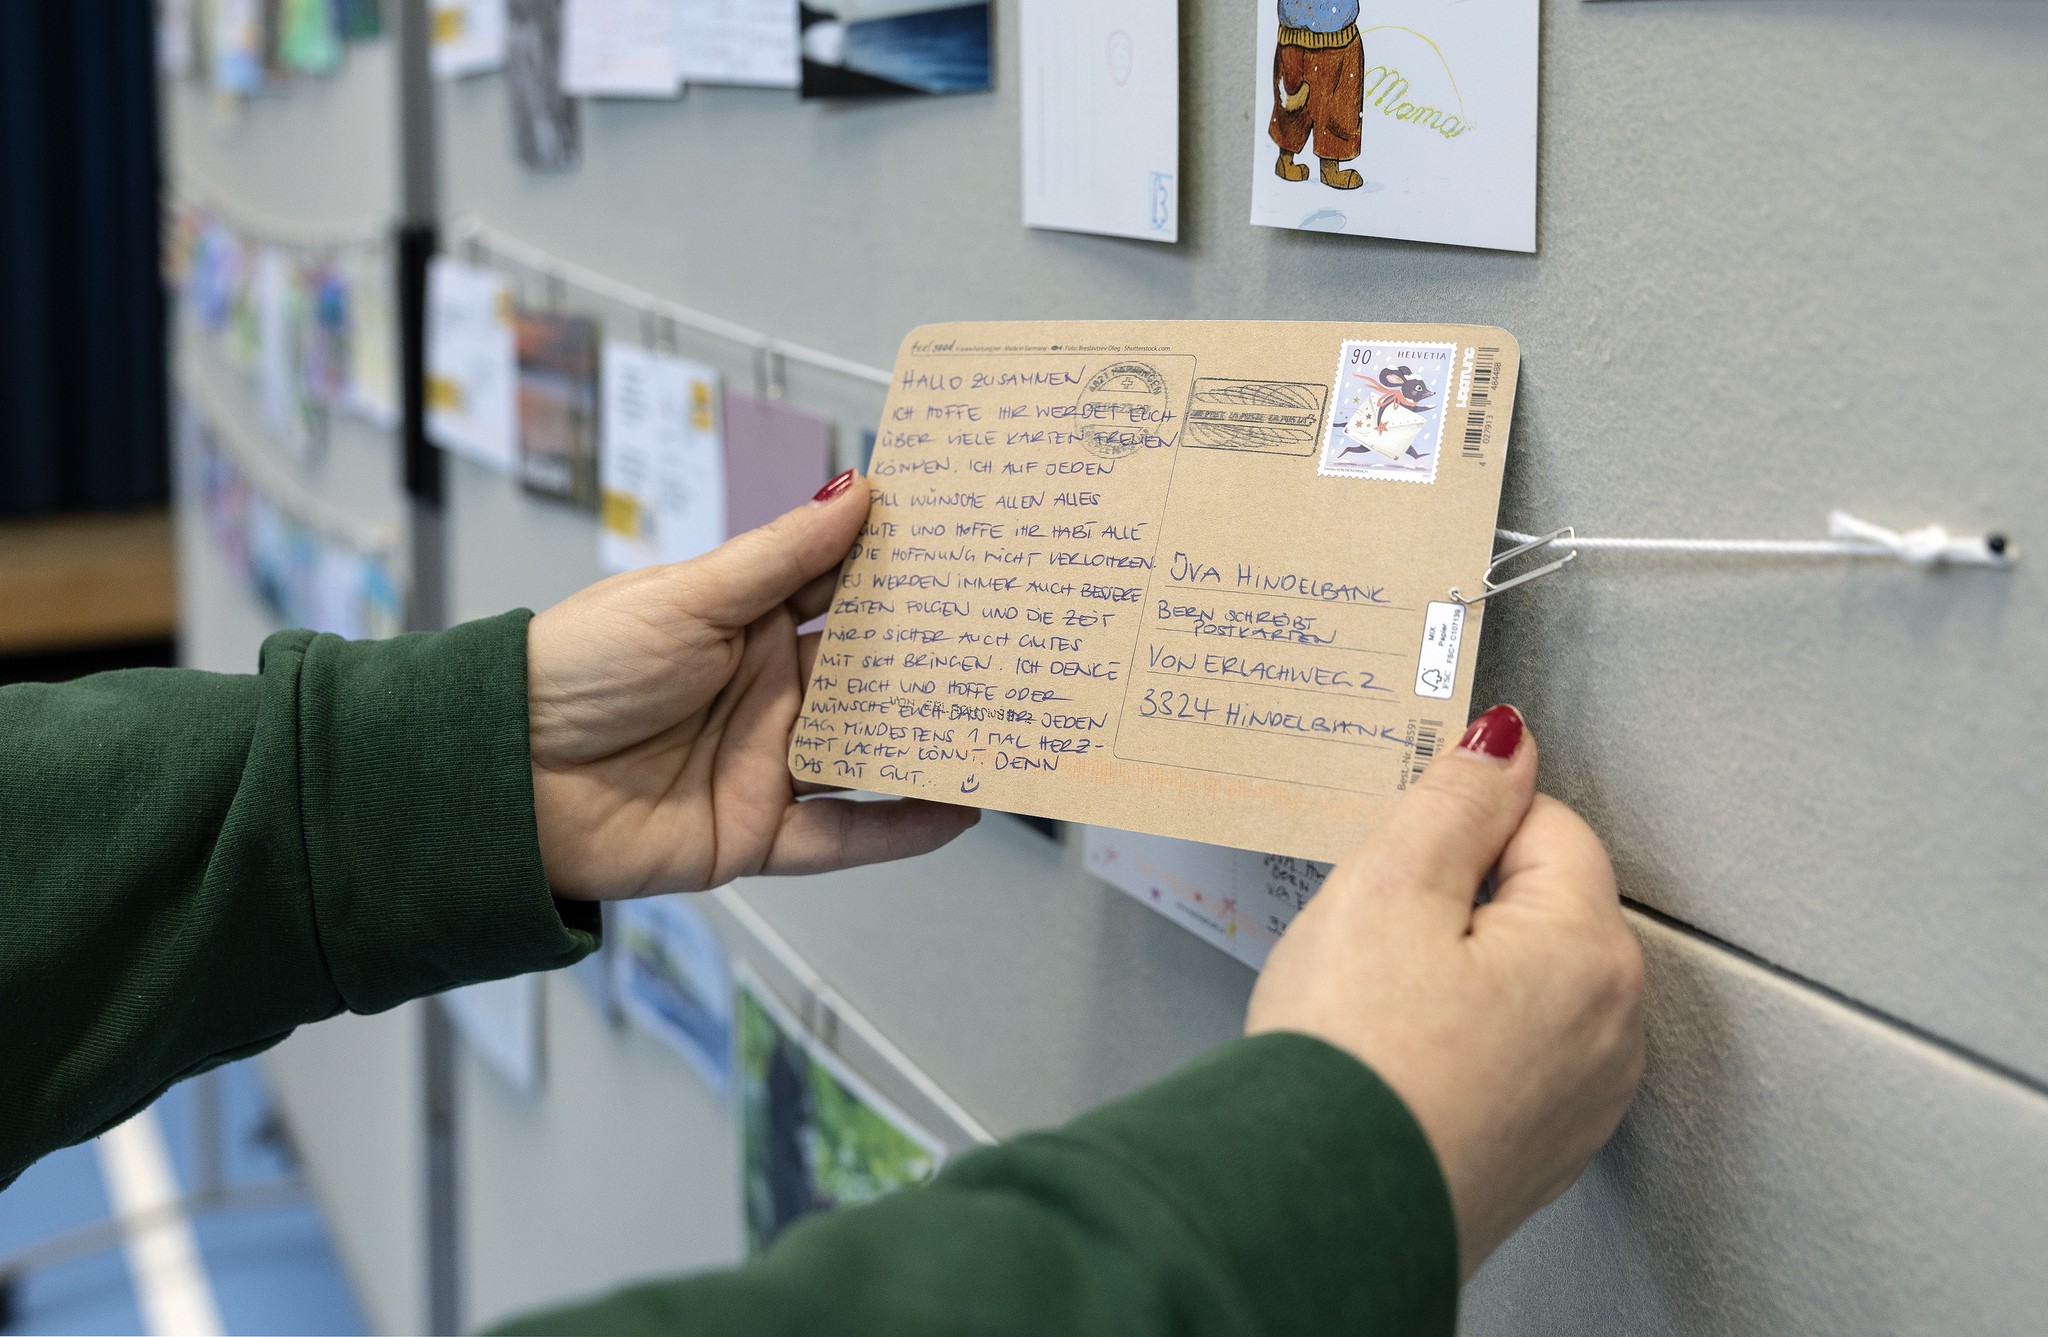 Mama
feel good
© www.hartung.net · Made in Germany · Foto: Breslavtsev Oleg · Shutterstock.com
HALLO ZUSAMMEN
ICH HOFFE IHR WERDET EUCH
ÜBER VIELE KARTEN FREUEN
KÖNNEN. ICH AUF JEDEN
FALL WÜNSCHE ALLEN ALLES
GUTE UND HOFFE IHR HABT ALLE
DIE HOFFNUNG NICHT VERLOHREN.
ES WERDEN IMMER AUCH BESSERE
ZEITEN FOLGEN UND DIE ZEIT
WIRD SICHER AUCH GUTES
MIT SICH BRINGEN. ICH DENKE
AN EUCH UND HOFFE ODER
WÜNSCHE EUCH DASS IHR JEDEN
TAG MINDESTENS 1 MAL HERZ-
HAFT LACHEN KÖNNT. DENN
DAS TUT GUT..
90 HELVETIA
HARTUNG
4 027913 484468
IVA HINDELBANK
BERN SCHREIBT
POSTKARTEN
VON ERLACHWEG 2
3324 HINDELBANK
MIX
Papier
FSC® C107139
FSC
Best.-Nr. 58591